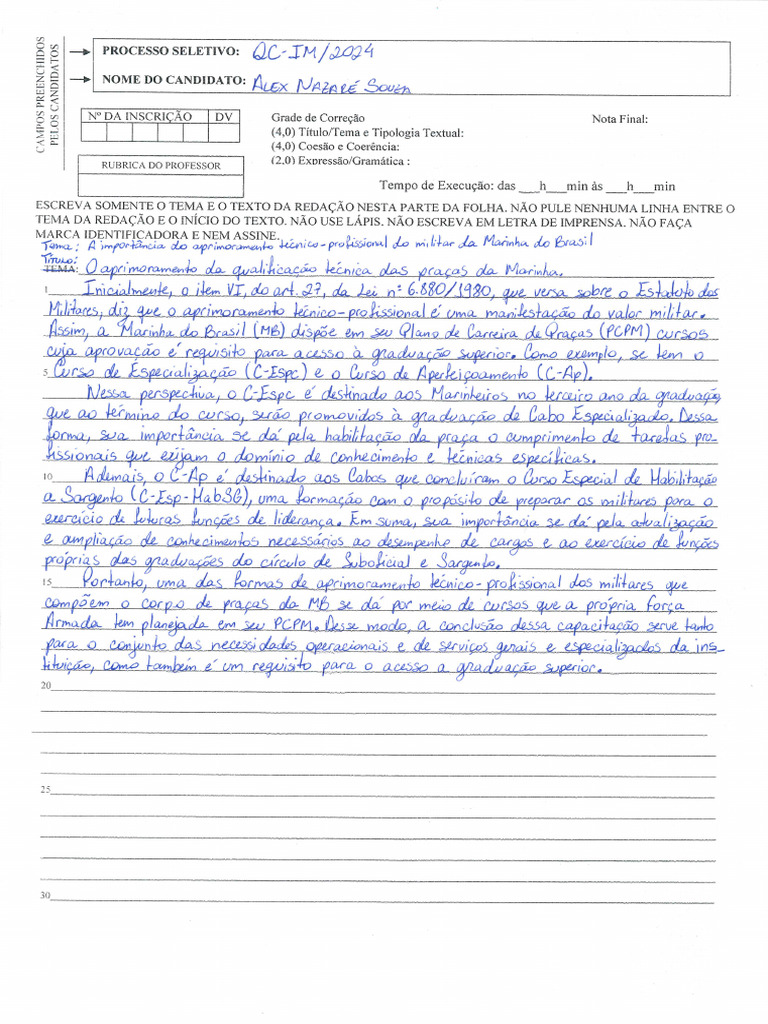 CAMPOS PREENCHIDOS
PELOS CANDIDATOS
PROCESSO SELETIVO: QC-IM/2024
NOME DO CANDIDATO: ALEX NAZARÉ SOUZA
Nº DA INSCRIÇÃO DV
RUBRICA DO PROFESSOR
Grade de Correção Nota Final:
(4,0) Título/Tema e Tipologia Textual:
(4,0) Coesão e Coerência:
(2,0) Expressão/Gramática :
Tempo de Execução: das ___h___min às ___h___min
ESCREVA SOMENTE O TEMA E O TEXTO DA REDAÇÃO NESTA PARTE DA FOLHA. NÃO PULE NENHUMA LINHA ENTRE O
TEMA DA REDAÇÃO E O INÍCIO DO TEXTO. NÃO USE LÁPIS. NÃO ESCREVA EM LETRA DE IMPRENSA. NÃO FAÇA
MARCA IDENTIFICADORA E NEM ASSINE.
Tema: A importância do aprimoramento técnico-profissional do militar da Marinha do Brasil
Título:
TEMA: O aprimoramento da qualificação técnica das praças da Marinha.
1 Inicialmente, o item VI, do art. 27, da Lei nº 6.880/1980, que versa sobre o Estatuto dos
Militares, diz que o aprimoramento técnico-profissional é uma manifestação do valor militar.
Assim, a Marinha do Brasil (MB) dispõe em seu Plano de Carreira de Praças (PCPM) cursos
cuja aprovação é requisito para acesso à graduação superior. Como exemplo, se tem o
5 Curso de Especialização (C-Espc) e o Curso de Aperfeiçoamento (C-Ap).
Nessa perspectiva, o C-Espc é destinado aos Marinheiros no terceiro ano da graduação
que ao término do curso, serão promovidos à graduação de Cabo Especializado. Dessa
forma, sua importância se dá pela habilitação da praça o cumprimento de tarefas pro-
fissionais que exijam o domínio de conhecimento e técnicas específicas.
10 Ademais, o C-Ap é destinado aos Cabos que concluíram o Curso Especial de Habilitação
a Sargento (C-Esp-HabSG), uma formação com o propósito de preparar os militares para o
exercício de futuras funções de liderança. Em suma, sua importância se dá pela atualização
e ampliação de conhecimentos necessários ao desempenho de cargos e ao exercício de funções
próprias das graduações do círculo de Suboficial e Sargento.
15 Portanto, uma das formas de aprimoramento técnico-profissional dos militares que
compõem o corpo de praças da MB se dá por meio de cursos que a própria força
Armada tem planejada em seu PCPM. Desse modo, a conclusão dessa capacitação serve tanto
para o conjunto das necessidades operacionais e de serviços gerais e especializados da ins-
tituição, como também é um requisito para o acesso a graduação superior.
20
25
30